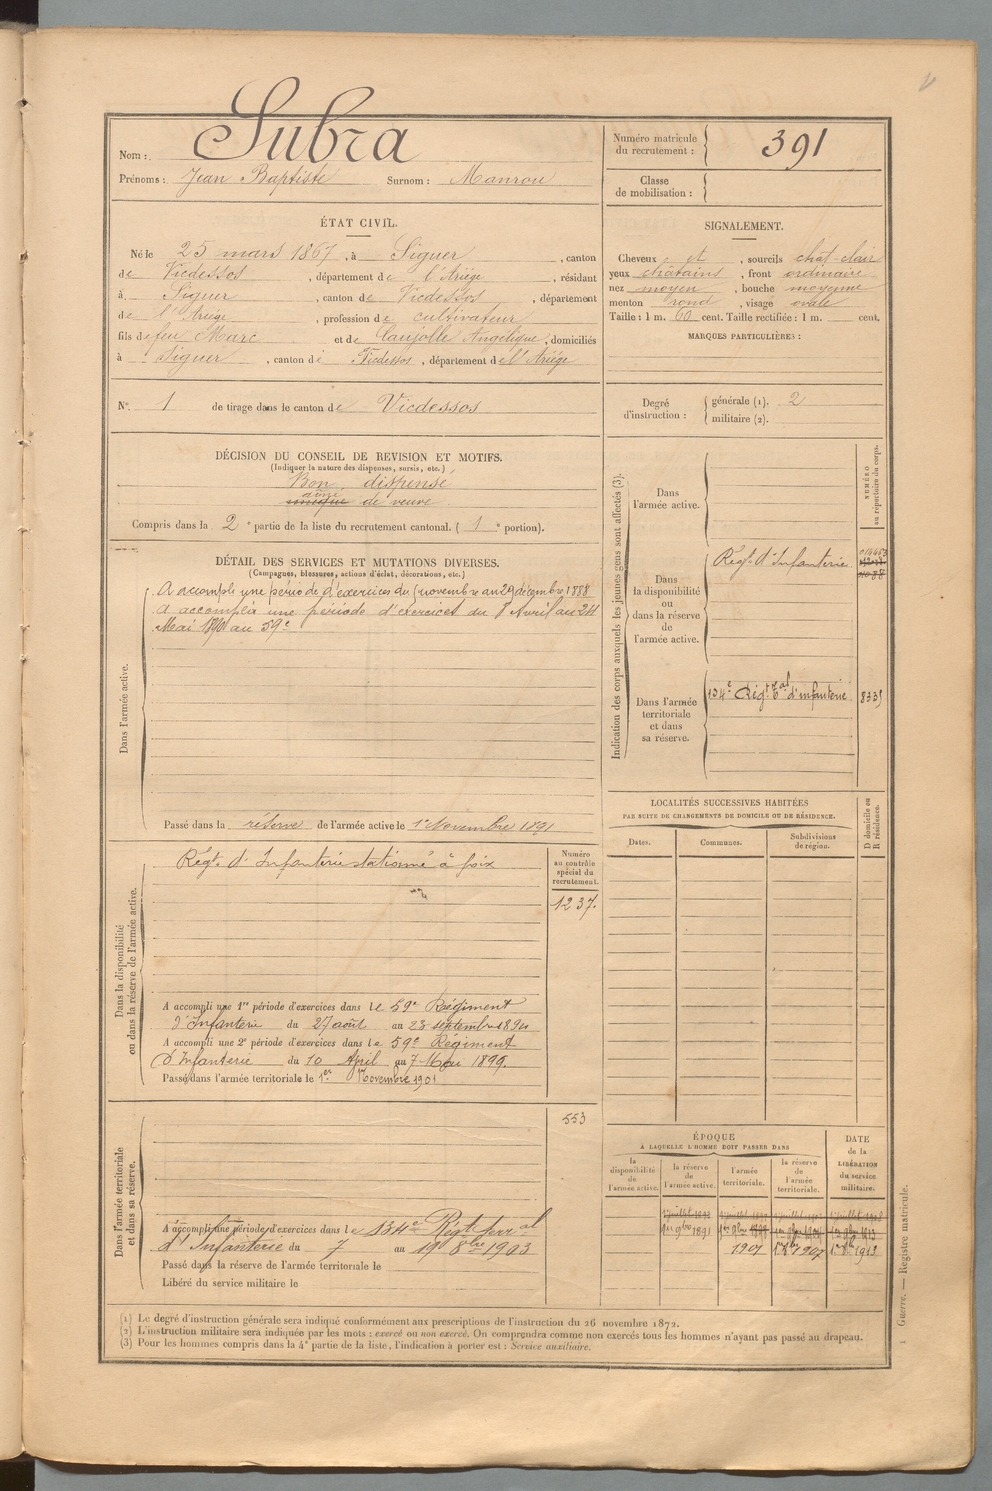 Subra
Nom :
Prénoms : Jean Baptiste Surnom : Manrou
Numéro matricule du recrutement : 391
Classe de mobilisation :
ÉTAT CIVIL.
Né le 25 mars 1867, à Siguer, canton
de Vicdessos, département de l'Ariège, résidant
à Siguer, canton de Vicdessos, département
de l'Ariège, profession de cultivateur
fils de feu Marc et de Caujolle Angélique, domiciliés
à Siguer, canton de Vicdessos, département de l'Ariège
SIGNALEMENT.
Cheveux et, sourcils chat-clair
yeux châtains, front ordinaire
nez moyen, bouche moyenne
menton rond, visage ovale
Taille : 1 m. 60 cent. Taille rectifiée : 1 m. cent.
MARQUES PARTICULIÈRES :
N° 1 de tirage dans le canton de Vicdessos
Degré d'instruction :
générale (1). 2
militaire (2).
DÉCISION DU CONSEIL DE REVISION ET MOTIFS.
(Indiquer la nature des dispenses, sursis, etc.)
Bon dispensé
aîné
unique de veuve
Compris dans la 2e partie de la liste du recrutement cantonal. (1e portion).
DÉTAIL DES SERVICES ET MUTATIONS DIVERSES.
(Campagnes, blessures, actions d'éclat, décorations, etc.)
Dans l'armée active.
A accompli une période d'exercices du novembre au 29 décembre 1888
A accompli une période d'exercices du 8 Avril au 24
Mai 1890 au 59e
Passé dans la réserve de l'armée active le 1er Novembre 1891
Indication des corps auxquels les jeunes gens sont affectés (3).
NUMÉRO au répertoire du corps.
Dans l'armée active.
Dans la disponibilité ou dans la réserve de l'armée active.
Régt d'Infanterie.
Dans l'armée territoriale et dans sa réserve.
134e Régt Tal d'infanterie. 8335
LOCALITÉS SUCCESSIVES HABITÉES
PAR SUITE DE CHANGEMENTS DE DOMICILE OU DE RÉSIDENCE.
Dates. Communes. Subdivisions de région.
D domicile ou R résidence.
Dans la disponibilité ou dans la réserve de l'armée active.
Régt d'Infanterie stationné à foix
Numéro au contrôle spécial du recrutement.
1237.
A accompli une 1re période d'exercices dans le 59e Régiment
d'Infanterie du 27 août au 23 septembre 1894
A accompli une 2e période d'exercices dans le 59e Régiment
d'Infanterie du 10 April au 7 Mai 1899.
Passé dans l'armée territoriale le 1er Novembre 1901
Dans l'armée territoriale et dans sa réserve.
553
A accompli une période d'exercices dans le 134e Régt terral
d'Infanterie du 7 au 19 8bre 1903
Passé dans la réserve de l'armée territoriale le
Libéré du service militaire le
ÉPOQUE
A LAQUELLE L'HOMME DOIT PASSER DANS
la disponibilité de l'armée active.
la réserve de l'armée active.
l'armée territoriale.
la réserve de l'armée territoriale.
DATE de la LIBÉRATION du service militaire.
1er 9bre 1891
1901
1907
1913
(1) Le degré d'instruction générale sera indiqué conformément aux prescriptions de l'instruction du 26 novembre 1872.
(2) L'instruction militaire sera indiquée par les mots : exercé ou non exercé. On comprendra comme non exercés tous les hommes n'ayant pas passé au drapeau.
(3) Pour les hommes compris dans la 4e partie de la liste, l'indication à porter est : Service auxiliaire.
Guerre. — Registre matricule.